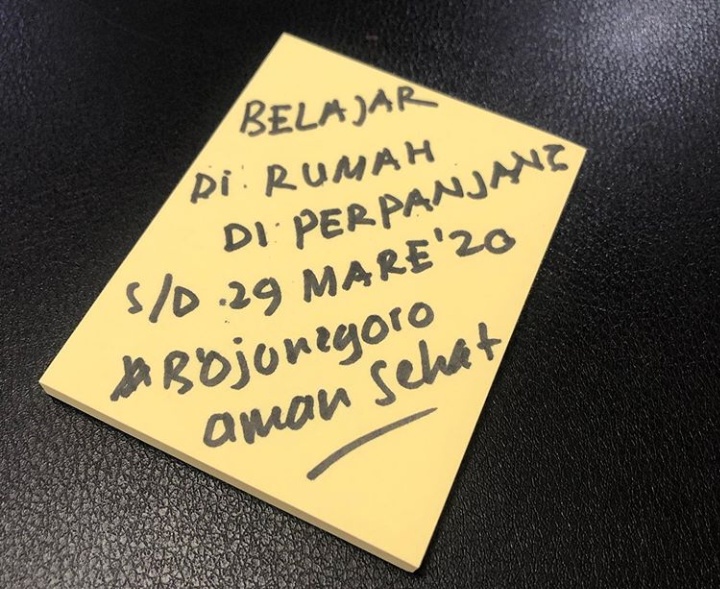 BELAJAR
Di RUMAH
Di PERPANJANG
S/D. 29 MARE'20
#Bojonegoro
aman sehat